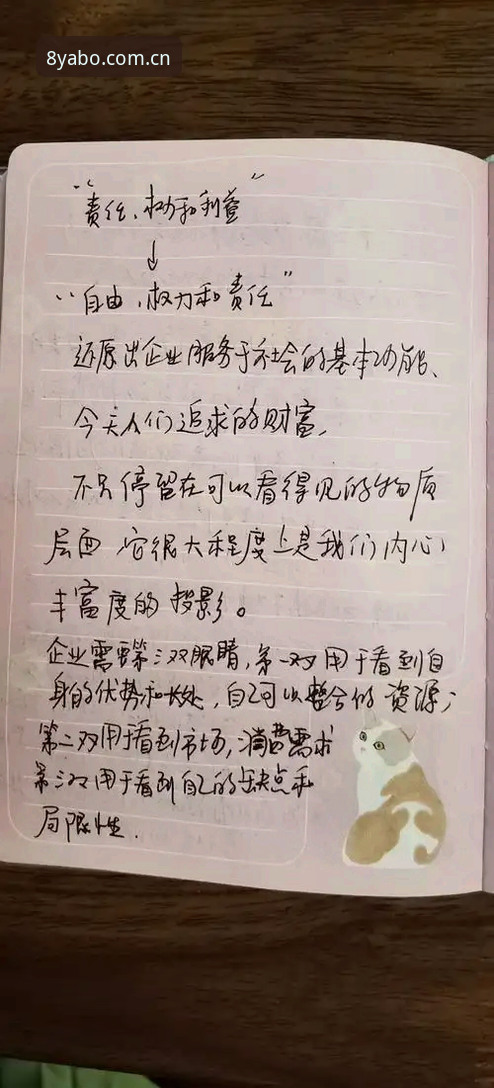 8yabo.com.cn
“责任、权力和利益”
↓
“自由、权力和责任”
还原出企业服务于社会的基本功能、
今天人们追求的财富,
不只停留在可以看得见的物质
层面 它很大程度上是我们内心
丰富度的投影。
企业需要第三双眼睛,第一双用于看到自
身的优势和长处,自己可以整合的资源;
第二双用于看到市场,消费需求
第三双用于看到自己的缺点和
局限性.